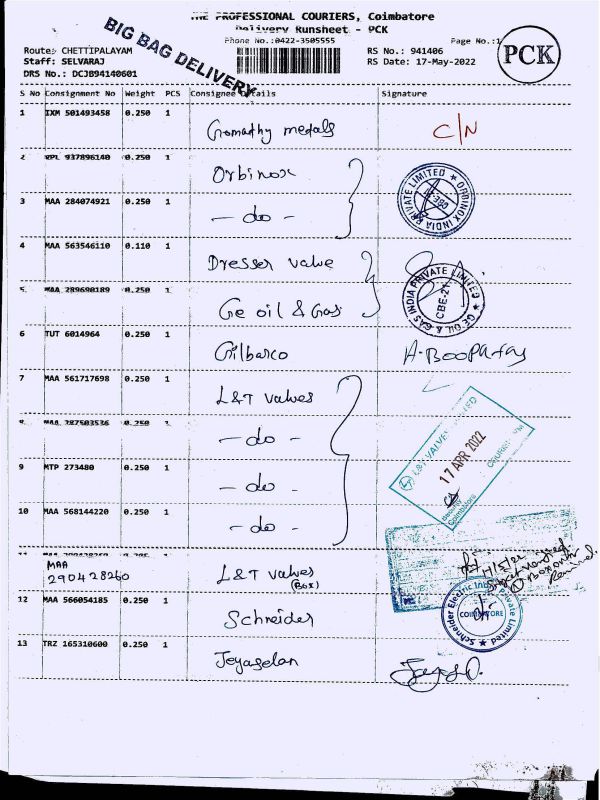 THE PROFESSIONAL COURIERS, Coimbatore
Delivery Runsheet - PCK
Phone No.:0422-3505555
Page No.:1
PCK
BIG BAG DELIVERY
Route: CHETTIPALAYAM
RS No.: 941406
Staff: SELVARAJ
RS Date: 17-May-2022
DRS No.: DCJB94140601
S No Consignment No Weight PCS Consignee Details Signature
1 IXM 501493458 0.250 1 Gomathy medals C/N
2 RPL 937896140 0.250 1 Orbinox
3 MAA 284074921 0.250 1 - do -
ORBINOX INDIA PRIVATE LIMITED
4 MAA 563546110 0.110 1 Dresser valve
5 MAA 289690189 0.250 1 Ge oil & Gas
GE OIL & GAS INDIA PRIVATE LIMITED
CBE-21
6 TUT 6014964 0.250 1 Gilbarco A. BOOPATHY
7 MAA 561717698 0.250 1 L&T valves
8 MAA 287503536 0.250 1 - do -
9 MTP 273480 0.250 1 - do -
10 MAA 568144220 0.250 1 - do -
17 APR 2022
Security
Coimbatore
11 MAA 290428260 L&T valves
(Box)
12 MAA 566054185 0.250 1 Schneider
Schneider Electric India Private Limited
COIMBATORE
13 TRZ 165310600 0.250 1 Jeyaselan